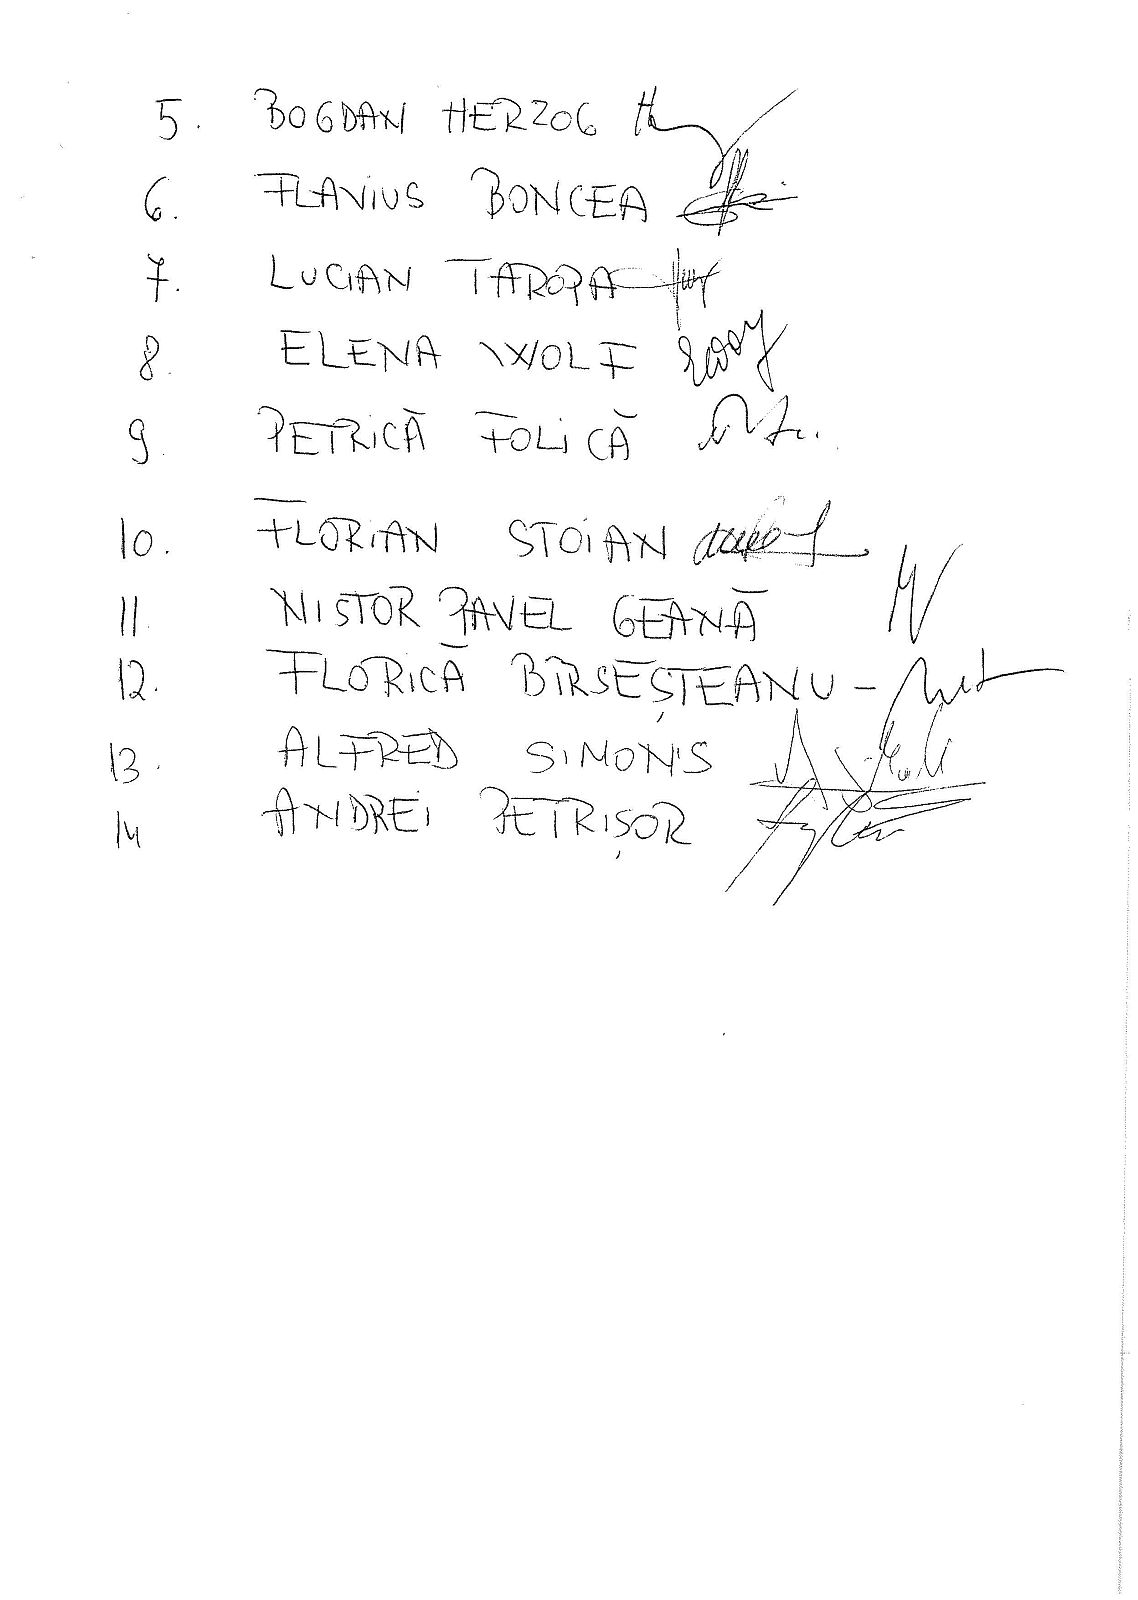 5. BOGDAN HERZOG
6. FLAVIUS BONCEA
7. LUCIAN TAROPA
8. ELENA WOLF
9. PETRICĂ FOLICĂ
10. FLORIAN STOIAN
11 NISTOR PAVEL GEANĂ
12. FLORICĂ BÎRSEȘTEANU -
13. ALFRED SIMONIS
14 ANDREI PETRIȘOR